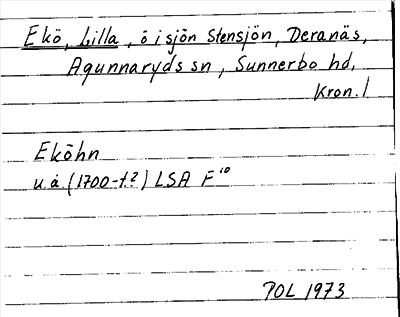 Ekö, Lilla, ö i sjön Stensjön, Deranäs,
Agunnaryds sn, Sunnerbo hd,
Kron. l
Eköhn
u.å. (1700-t.?) LSA F 10
POL 1973